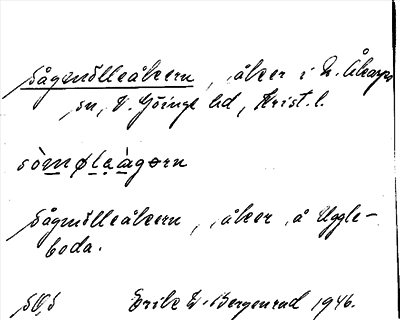 Sågmölleåkern, åker i N. Åkarps
sn, V. Göinge hd, Krist. l.
sòmøleàgərn
Sågmölleåkern, åker å Uggle-
boda.
Erik W. Bergenrud 1946.